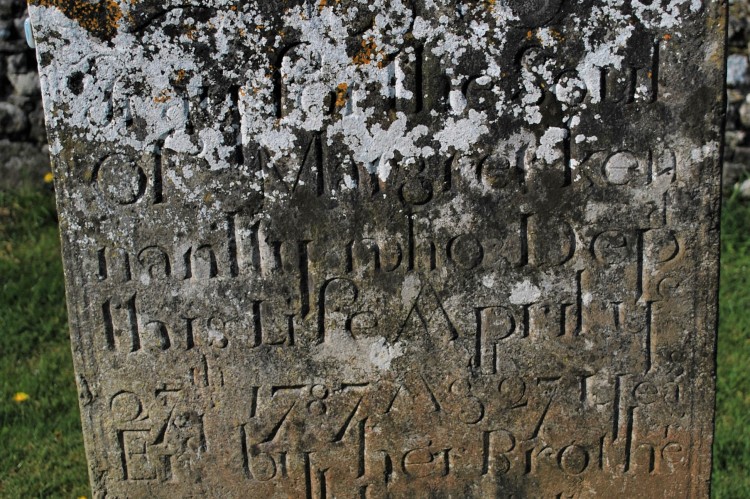 the Soul
of Margret ken
nanlly who Depd
this Life April ye
27th 1787 Ag 27 Years
Erd by her Brother